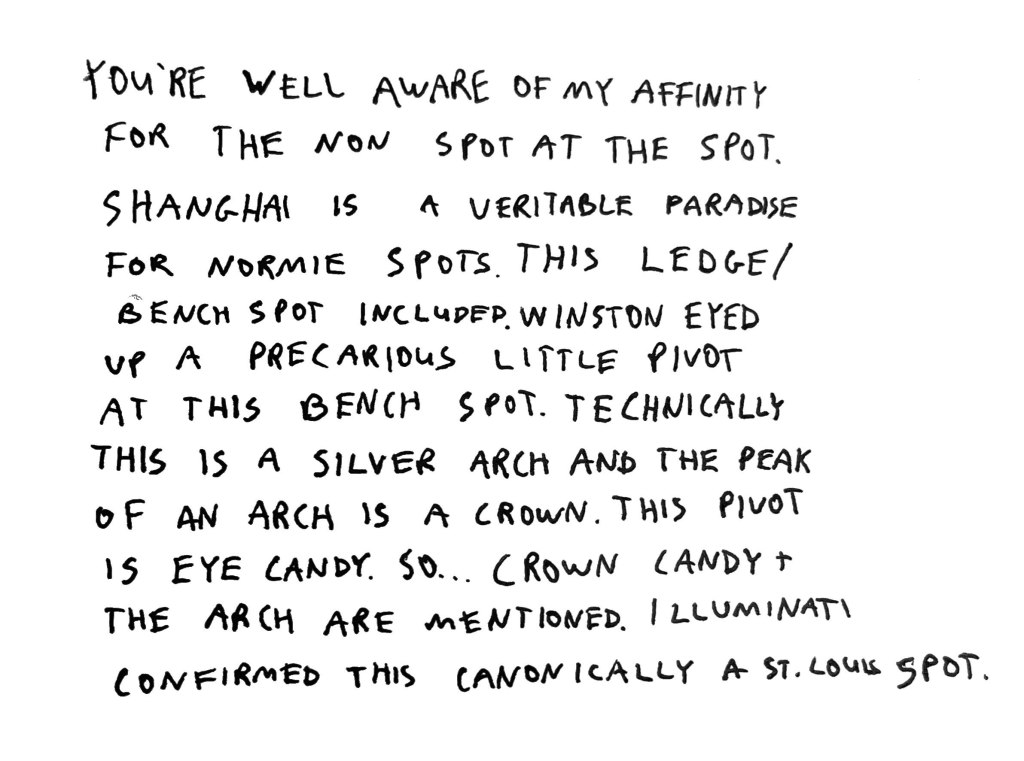 YOU'RE WELL AWARE OF MY AFFINITY
FOR THE NON SPOT AT THE SPOT.
SHANGHAI IS A VERITABLE PARADISE
FOR NORMIE SPOTS. THIS LEDGE/
BENCH SPOT INCLUDED. WINSTON EYED
UP A PRECARIOUS LITTLE PIVOT
AT THIS BENCH SPOT. TECHNICALLY
THIS IS A SILVER ARCH AND THE PEAK
OF AN ARCH IS A CROWN. THIS PIVOT
IS EYE CANDY. SO... CROWN CANDY +
THE ARCH ARE MENTIONED. ILLUMINATI
CONFIRMED THIS CANONICALLY A ST. LOUIS SPOT.